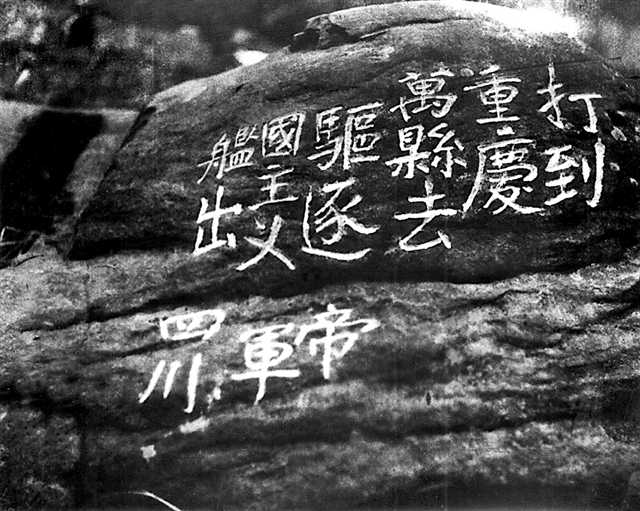 打到
重慶
萬縣去
驅逐帝
國主义軍
艦出四川